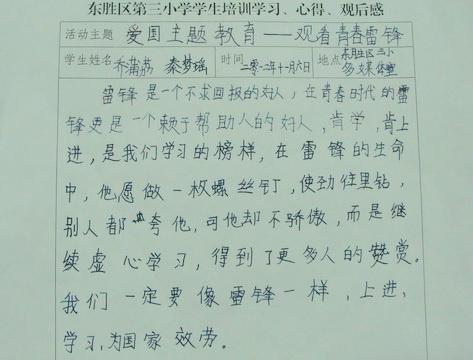 东胜区第三小学学生培训学习、心得、观后感
活动主题 爱国主题教育——观看青春雷锋
学生姓名 乔蒲荔 秦梦瑶 时间 二零一二年十一月六日 地点 东胜区三小多媒体室
雷锋是一个不求回报的好人,在青春时代的雷
锋更是一个乐于帮助人的好人,肯学,肯上
进,是我们学习的榜样,在雷锋的生命
中,他愿做一枚螺丝钉,使劲往里钻,
别人都夸他,可他却不骄傲,而是继
续虚心学习,得到了更多人的赞赏。
我们一定要像雷锋一样,上进、
学习,为国家效劳。